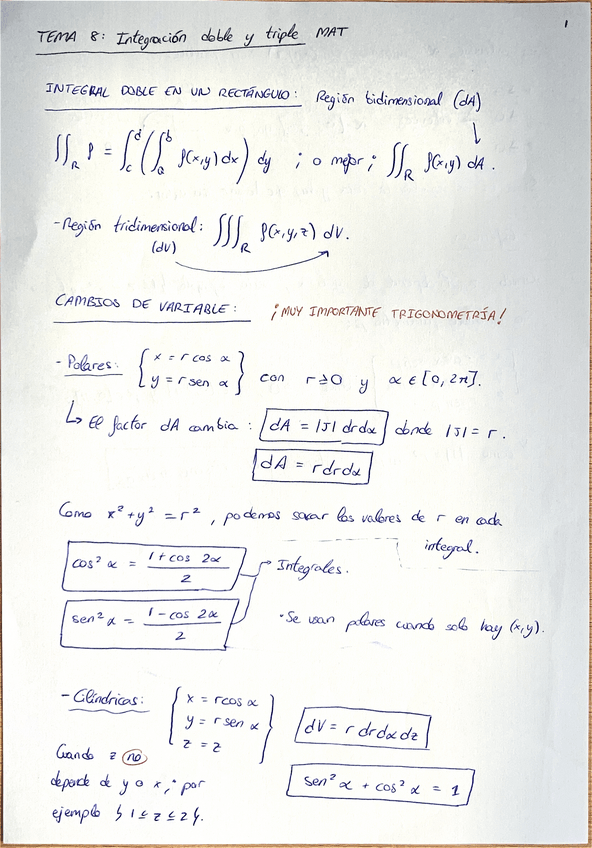 1
TEMA 8: Integración doble y triple MAT
INTEGRAL DOBLE EN UN RECTÁNGULO: Región bidimensional (dA)
∬_R f = ∫_c^d (∫_a^b f(x,y) dx) dy ; o mejor ; ∬_R f(x,y) dA.
- Región tridimensional: ∭_R f(x,y,z) dV.
(dV)
CAMBIOS DE VARIABLE: ¡MUY IMPORTANTE TRIGONOMETRÍA!
- Polares: { x = r cos α
y = r sen α } con r ≥ 0 y α ∈ [0, 2π].
↳ El factor dA cambia: dA = |J| dr dα donde |J| = r.
dA = r dr dα
Como x² + y² = r², podemos sacar los valores de r en cada
integral.
cos² α = (1 + cos 2α)/2 → Integrales.
sen² α = (1 - cos 2α)/2
· Se usan polares cuando solo hay (x,y).
- Cilíndricas: { x = r cos α
y = r sen α
z = z }
dV = r dr dα dz
Cuando z no
depende de y o x, por
ejemplo { 1 ≤ z ≤ 2 }.
sen² α + cos² α = 1